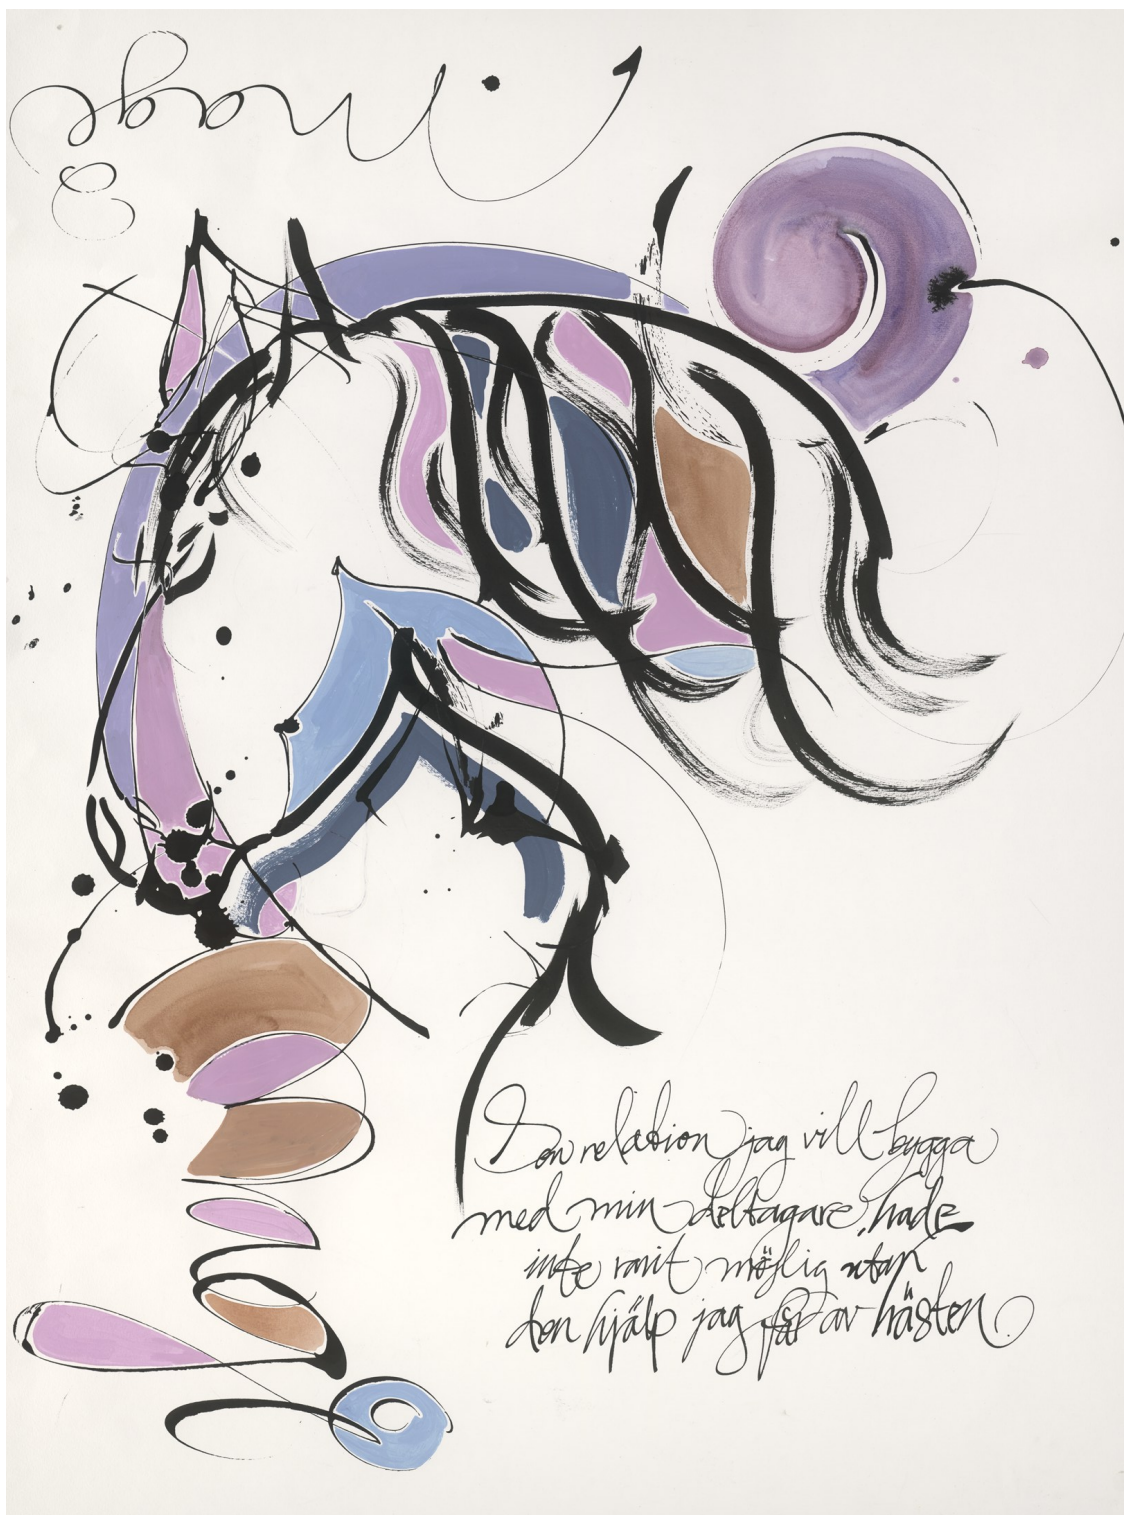 Den relation jag vill bygga
med min deltagare, hade
inte varit möjlig utan
den hjälp jag får av hästen.